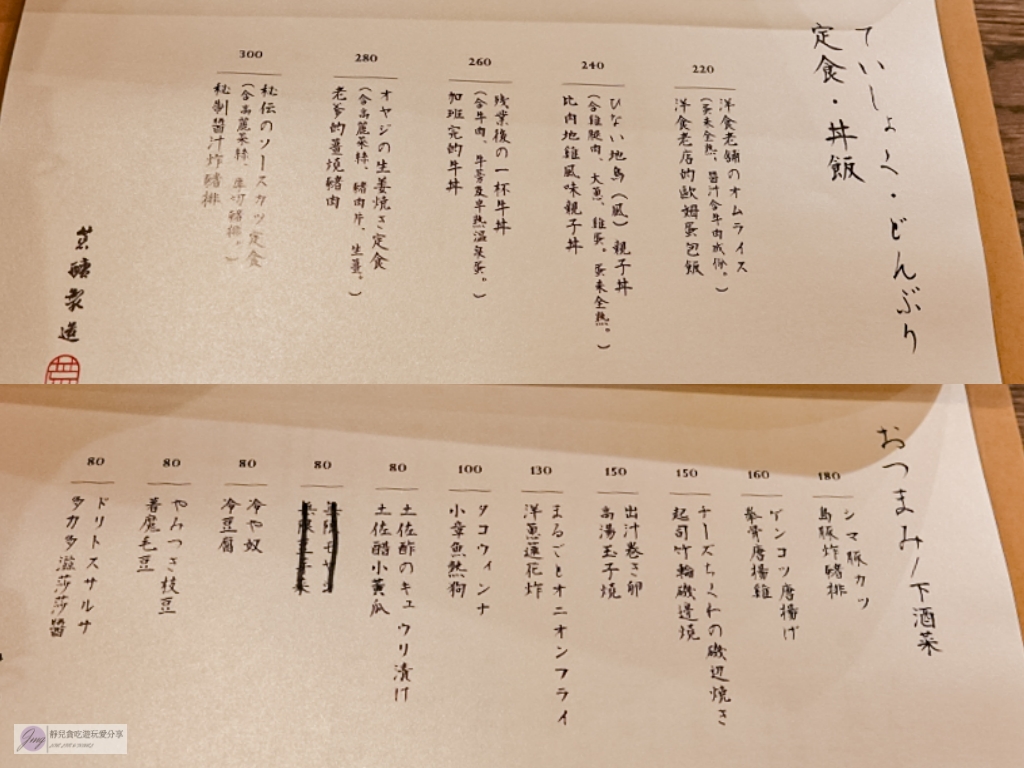 ていしょく・どんぶり
定食・丼飯
220
洋食老舗のオムライス
(蛋未全熟、醬汁含牛肉成份。)
洋食老店的歐姆蛋包飯
240
ひない地鳥(風)親子丼
(含雞腿肉、大蔥、雞蛋。蛋未全熟。)
比內地雞風味親子丼
260
残業後の一杯牛丼
(含牛肉、牛蒡及半熟溫泉蛋。)
加班完的牛丼
280
オヤジの生姜焼き定食
(含高麗菜絲、豬肉片、生薑。)
老爹的薑燒豬肉
300
秘伝のソースカツ定食
(含高麗菜絲、厚切豬排。)
秘制醬汁炸豬排
製造
おつまみ/下酒菜
180
シマ豚カツ
島豚炸豬排
160
ゲンコツ唐揚げ
拳骨唐揚雞
150
チーズちくわの磯辺焼き
起司竹輪磯邊燒
150
出汁巻き卵
高湯玉子燒
130
まるごとオニオンフライ
洋蔥蓮花炸
100
タコウィンナ
小章魚熱狗
80
土佐酢のキュウリ漬け
土佐醋小黃瓜
80
80
冷や奴
冷豆腐
80
やみつき枝豆
着魔毛豆
80
ドリトスサルサ
多力多滋莎莎醬
靜兒貪吃遊玩愛分享